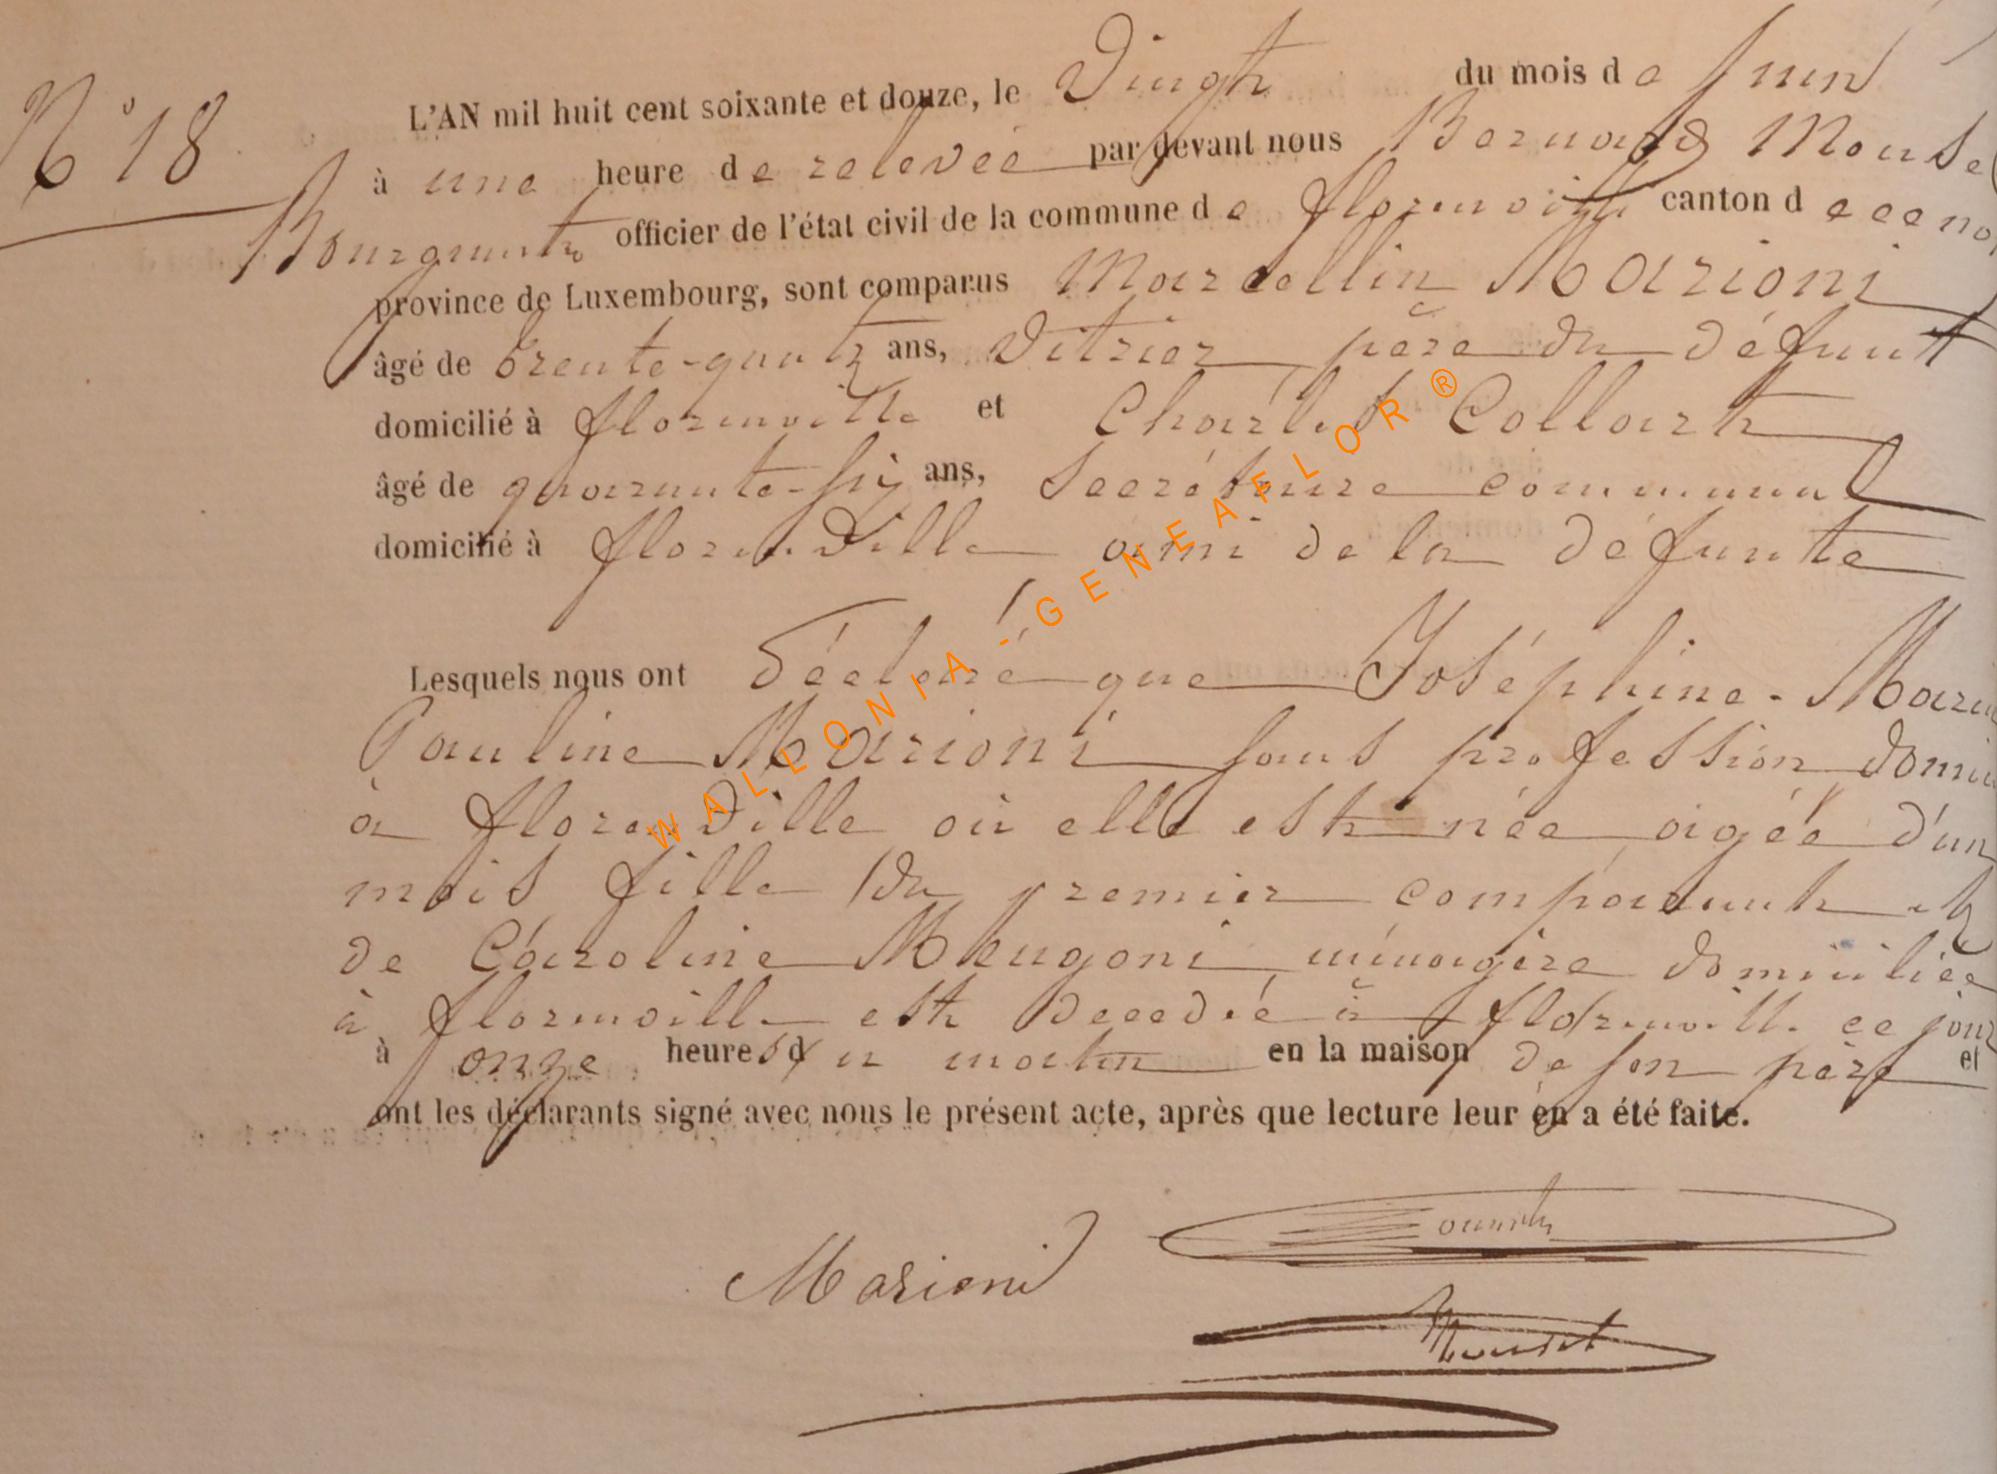 N° 18
L'AN mil huit cent soixante et douze, le Vingt du mois de Juin
à une heure de relevée par devant nous Bernard Mouse
Bourgmestre officier de l'état civil de la commune de florenville canton de ceeno
province de Luxembourg, sont comparus Marcellin Marioni
âgé de trente-quatre ans, Vitrier père du défunt
domicilié à florenville et Charles Collart
âgé de quarante-six ans, Secrétaire communal
domicilié à florenville ami de la défunte
Lesquels nous ont déclaré que Joséphine-Marie
Pauline Marioni sans profession domici
à florenville où elle est née aigée d'un
mois fille du premier comparant et
de Caroline Mengoni ménagère domiciliée
à florenville est décédée à florenville ce jour
à onze heures du matin en la maison de son père et
ont les déclarants signé avec nous le présent acte, après que lecture leur en a été faite.
Marioni
Mouset
WALLONIA-GENEAFLOR®